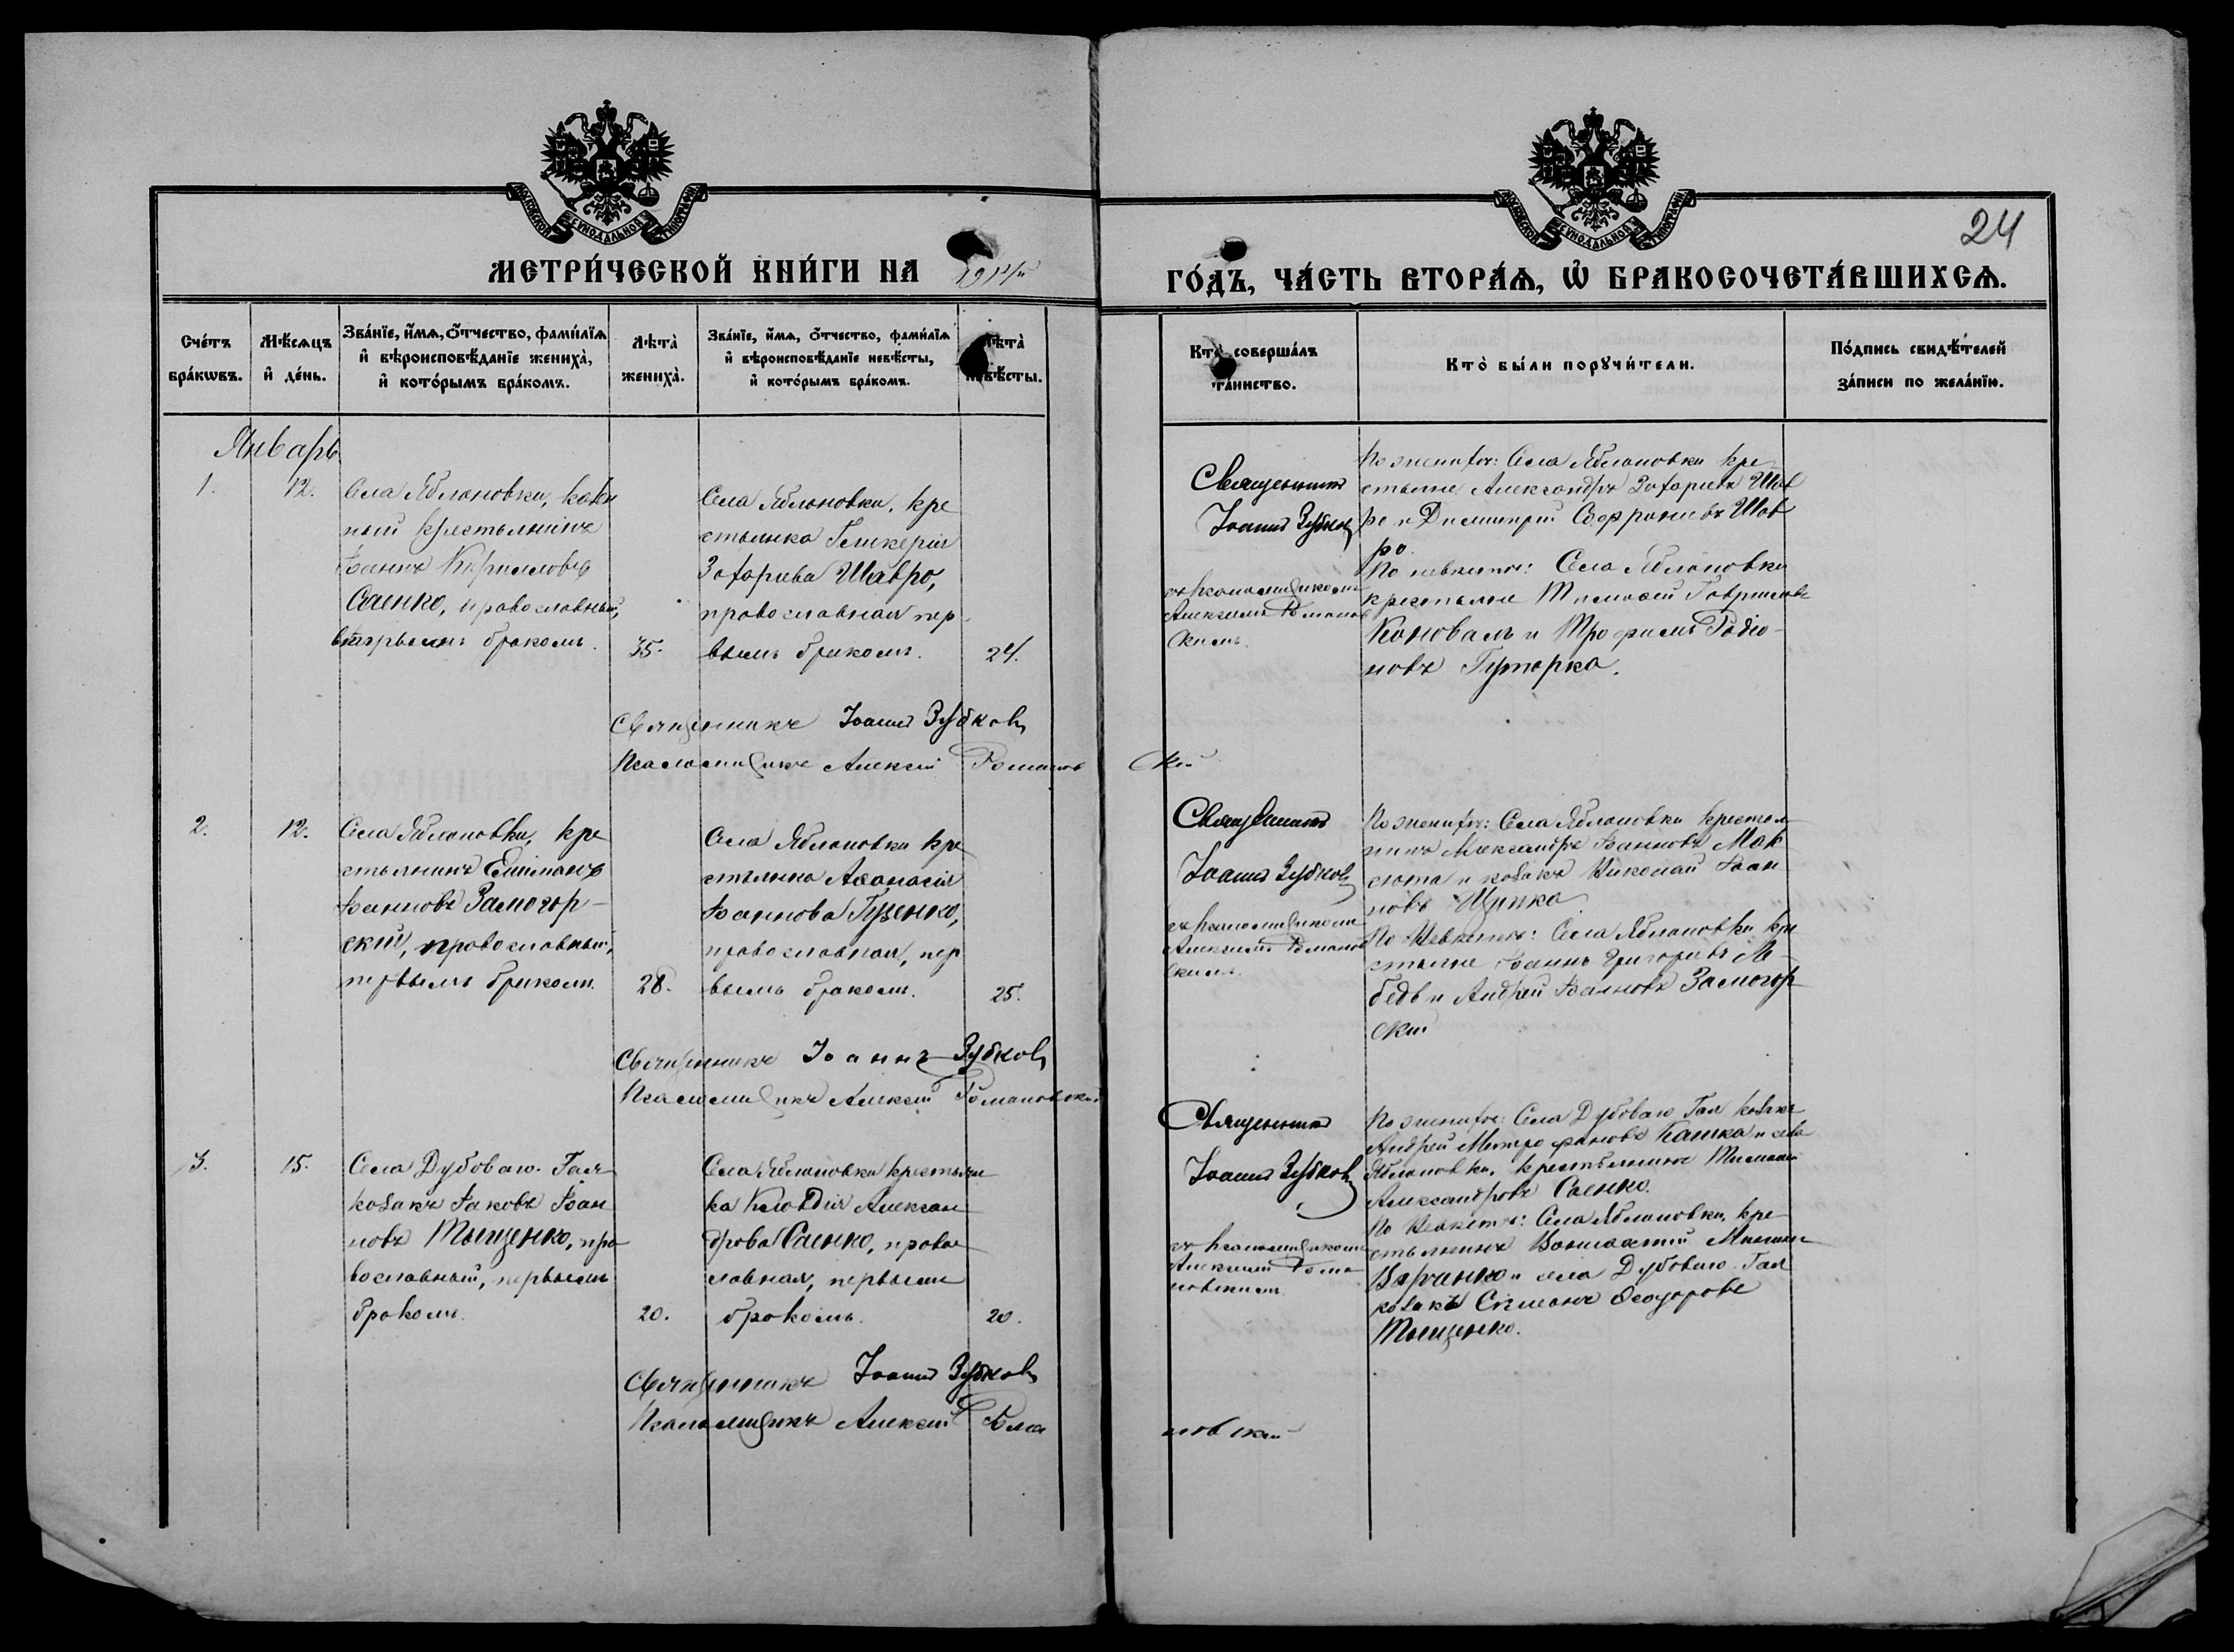 24
МЕТРИ́ЧЕСКОЙ КНИ́ГИ НА 1914й ГО́ДЪ, ЧА́СТЬ ВТОРА́Ѧ, Ѽ БРАКОСОЧЕТА́ВШИХСѦ.
Сче́тъ бра́кѡвъ.
Мѣ́сѧцъ и҆ де́нь.
Зва́нїе, и҆́мѧ, ѻ҆́тчество, фами́лїѧ и҆ вѣроисповѣ́данїе жениха̀, и҆ кото́рымъ бра́комъ.
Лѣта̀ жениха̀.
Зва́нїе, и҆́мѧ, ѻ҆́тчество, фами́лїѧ и҆ вѣроисповѣ́данїе невѣ́сты, и҆ кото́рымъ бра́комъ.
Лѣта̀ невѣ́сты.
Кто̀ соверша́лъ та́инство.
Кто̀ бы́ли порꙋчи́тели.
По́дпись свидѣ́телей за́писи по жела́нїю.
Январь
1.
12.
Села Яблоновки,
крестьянинъ
Іоаннъ Кирилловъ
Саенко, православный,
вторымъ бракомъ.
35.
Села Яблоновки, кре
стьянка Гликерія
Захарьева Шавро,
православная пер
вымъ бракомъ.
24.
Священникъ
Іоаннъ Зубковъ
съ псаломщикомъ
Алексіемъ Романов
скимъ.
По женихѣ: Села Яблоновки кре
стьяне Александръ Захарьевъ Шав
ро и Димитрій Софроніевъ Шав
ро.
По невѣстѣ: Села Яблоновки
крестьяне Тимофей Гавриловъ
Коновалъ и Трофимъ Родіо
новъ Гутарка.
Священникъ Іоаннъ Зубковъ
Псаломщикъ Алексій Романов
скій
2.
12.
Села Яблоновки, кре
стьянинъ
Іоанновъ Замогор
скій, православный,
первымъ бракомъ.
28.
Села Яблоновки кре
стьянка Аѳанасія
Іоаннова Гузенко,
православная, пер
вымъ бракомъ.
25.
Священникъ
Іоаннъ Зубковъ
съ псаломщикомъ
Алексіемъ Романов
скимъ.
По женихѣ: Села Яблоновки крестья
нинъ Александръ Іоанновъ Мак
сюта и козакъ Николай Іоан
новъ Щупка
По невѣстѣ: Села Яблоновки кре
стьяне Іоаннъ Григорьевъ Ле
бедь и Андрей Іоанновъ Замогор
скій
Священникъ Іоаннъ Зубковъ
Псаломщикъ Алексій Романовскій
3.
15.
Села Дубоваго-Гая
козакъ Іаковъ Іоан
новъ Тыщенко, пра
вославный, первымъ
бракомъ.
20.
Села Яблоновки крестьян
ка Клавдія Алексан
дрова Саенко, правос
лавная, первымъ
бракомъ.
20.
Священникъ
Іоаннъ Зубковъ
съ псаломщикомъ
Алексіемъ Рома
новскимъ.
По женихѣ: Села Дубоваго Гая козакъ
Андрей Митрофановъ Кашка и села
Яблоновки, крестьянинъ Тимофей
Александровъ Саенко.
По невѣстѣ: Села Яблоновки, кре
стьянинъ
и села Дубоваго-Гая
козакъ Симеонъ Ѳеодоровъ
Тыщенко.
Священникъ Іоаннъ Зубковъ
Псаломщикъ Алексій Рома
новскій